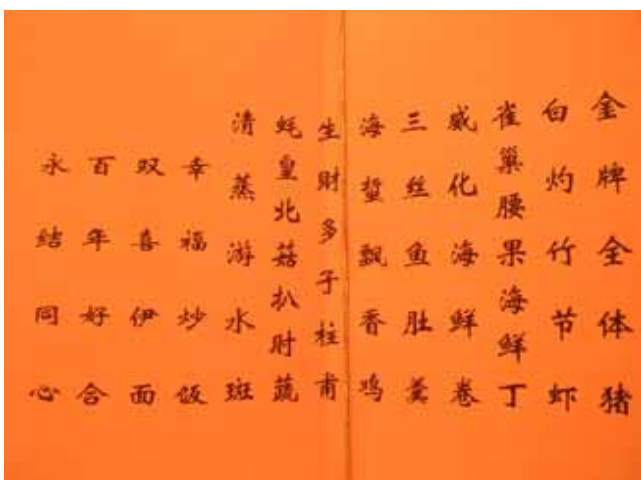 金牌全体猪
白灼竹节虾
雀巢腰果海鲜丁
威化海鲜卷
三丝鱼肚羹
海蜇飘香鸡
生财多子柱甫
蚝皇北菇扒时蔬
清蒸游水斑
幸福炒饭
双喜伊面
百年好合
永结同心